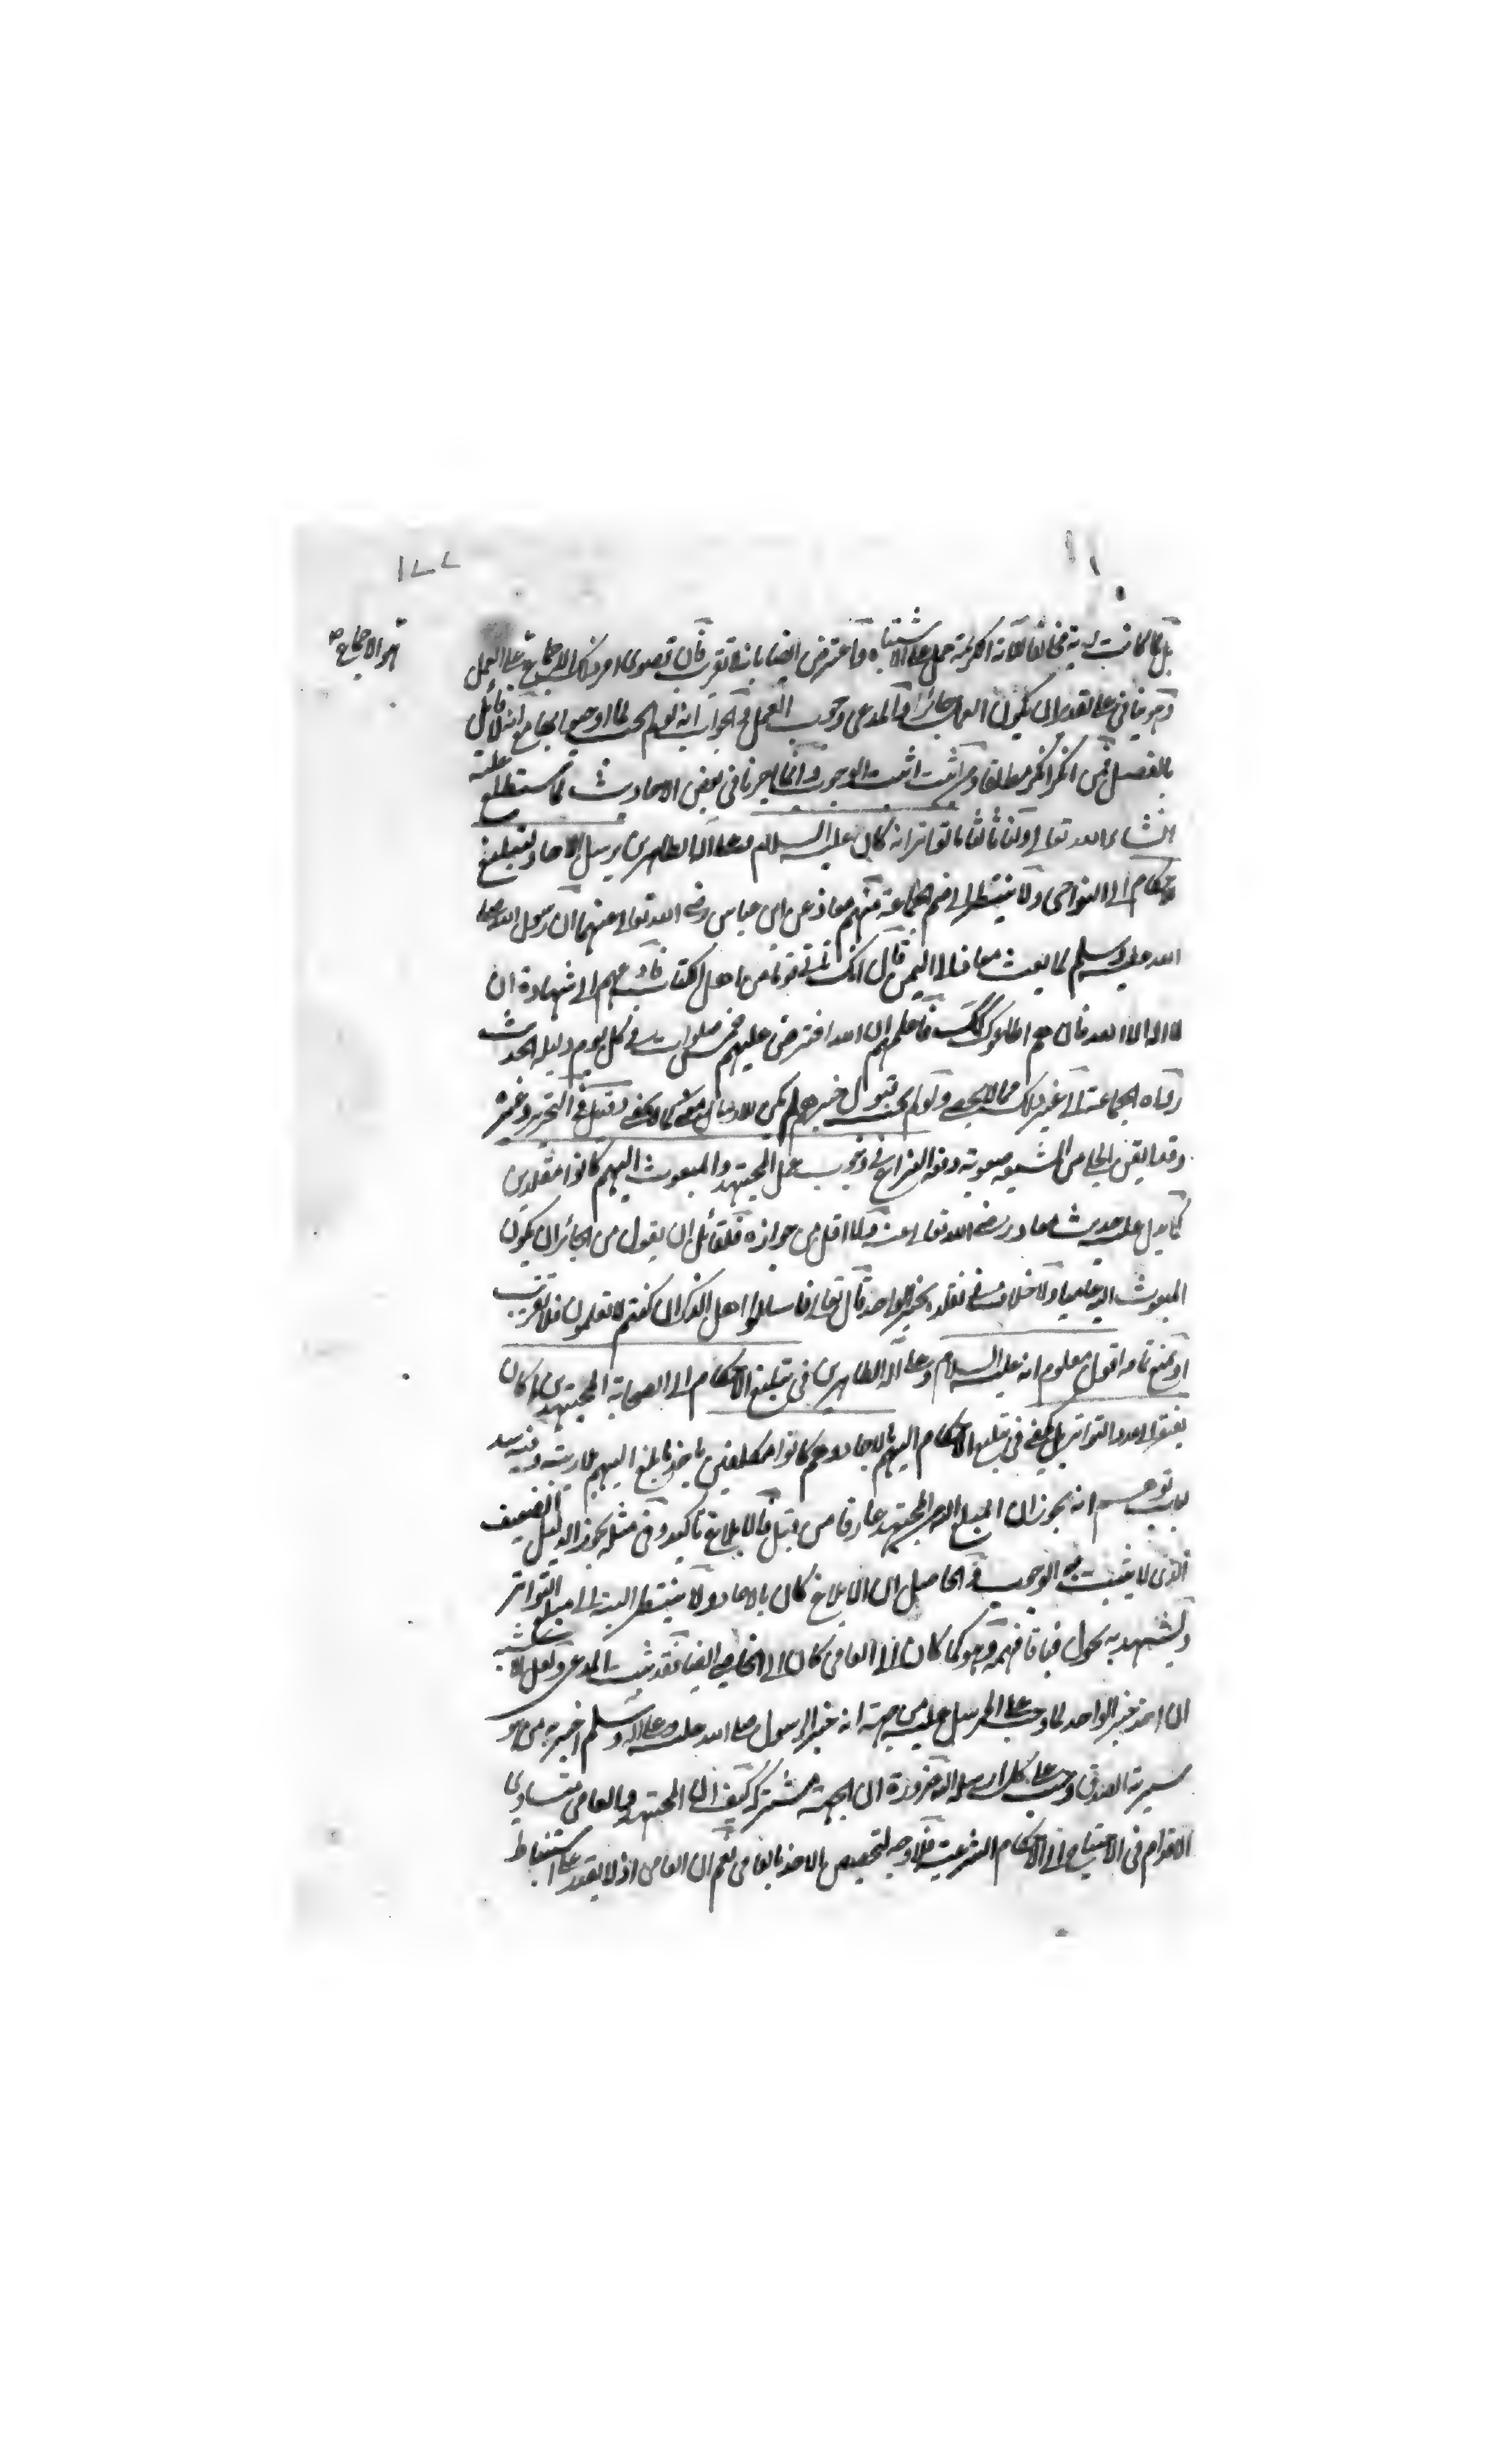 ١٧٧
هو الاجماع صح
بل لما كانت مخالفا للآية الكريمة حمل على الاشتباه واعترض ايضا بانه لا تقرب فان قصوى امر ذلك الاجماع على العمل
وهو ينافي على تقدير ان يكون العمل جائزا والمدعى وجوب العمل والجواب انه لو لم يجب لما اوجبوا بها مع انه لا قائل
بالفصل فمن انكر انكر مطلقا ومن اثبت اثبت الوجوب وانما اجرنا في بعض الاحاديث كما ستطلع عليه
انشاء الله تعالى ولنا ثالثا بالتواتر انه كان عليه السلام وعلى آله الطاهرين يرسل الآحاد لتبليغ
الاحكام الى النواحي ولا ينتظر الى ضم الجماعة منهم معاذ عن ابن عباس رضي الله تعالى عنهما ان رسول الله صلى
الله عليه وسلم لما بعث معاذا الى اليمن قال انك تاتي قوما من اهل الكتاب فادعهم الى شهادة ان
لا اله الا الله فان هم اطاعوك لذلك فاعلمهم ان الله افترض عليهم خمس صلوات في كل يوم وليلة الحديث
رواه الجماعة الى غير ذلك مما لا يحصى ولو لم يجب قبول خبرهم لم يكن للارسال معنى كما لا يخفى وقيل في التحرير وغيره
وقد ايقن الحلي من الشيعة صعوبته دفعه النزاع في وجوب عمل المجتهد والمبعوث اليهم كانوا مقلدين
كما يدل عليه حديث معاذ رضي الله تعالى عنه ولا اقل من جوازه فلقائل ان يقول من الجائز ان يكون
المبعوث اليه عاميا ولا خلاف في تقلده بخبر الواحد قال تعالى فاسئلوا اهل الذكر ان كنتم لا تعلمون فلا تقريب
او يمنع تامه اقول معلوم انه عليه السلام وعلى آله الطاهرين في تبليغ الاحكام الى الصحابة المجتهدين ما كان
يفتقر الى عدد التواتر بل يكفي في تبليغ الاحكام اليهم بالاحاد وهم كانوا مكلفين باخذ ما بلغ اليهم بلا ريبة وفيه سد
لباب توهم انه يجوز ان المبلغ اليه المجتهد عارفا من قبل فالابلاغ تاكيد وفي مثله يجوز الدليل الضعيف
الذي لا يثبت به الوجوب والحاصل ان الابلاغ كان بالاحاد ولا ينتظر البتة الى مبلغ التواتر
ويشهد به عقول فياقة فهمه وهو كما كان الى العامي كان الى الخاص ايضا فقد ثبت المدعى ولعل الاشبه
ان اخذ خبر الواحد لما وجب على المرسل عليه من جهة انه خبر الرسول صلى الله عليه وعلى آله وسلم اخبر به من هو
سيرته الصدق وجب على كل ارسل اليه ضرورة ان الجهة مشتركة كيف ان المجتهد والعامي متساوي
الاقدام في الاحتياج الى الاحكام الشرعية فلا وجه لتخصيص الاخذ بالعامي نعم ان العامي اذ لا يقدر على استنباط